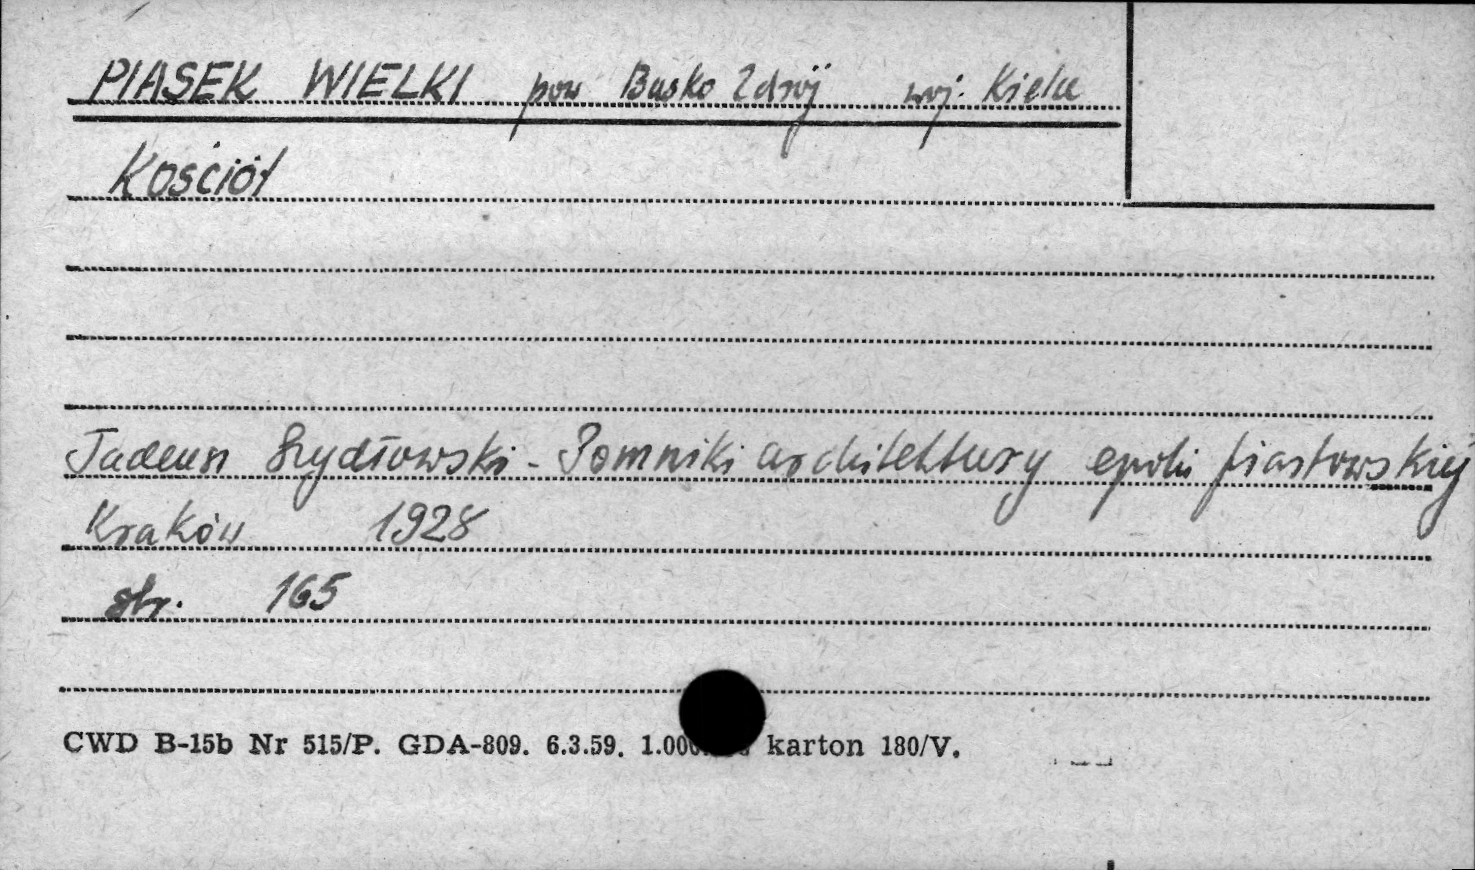 PIASEK WIELKI pow Busko Zdrój woj. Kielce
Kościół
Tadeusz Szydłowski - Pomniki architektury epoki piastowskiej
Kraków 1928
str. 165
CWD B-15b Nr 515/P. GDA-809. 6.3.59. karton 180/V.